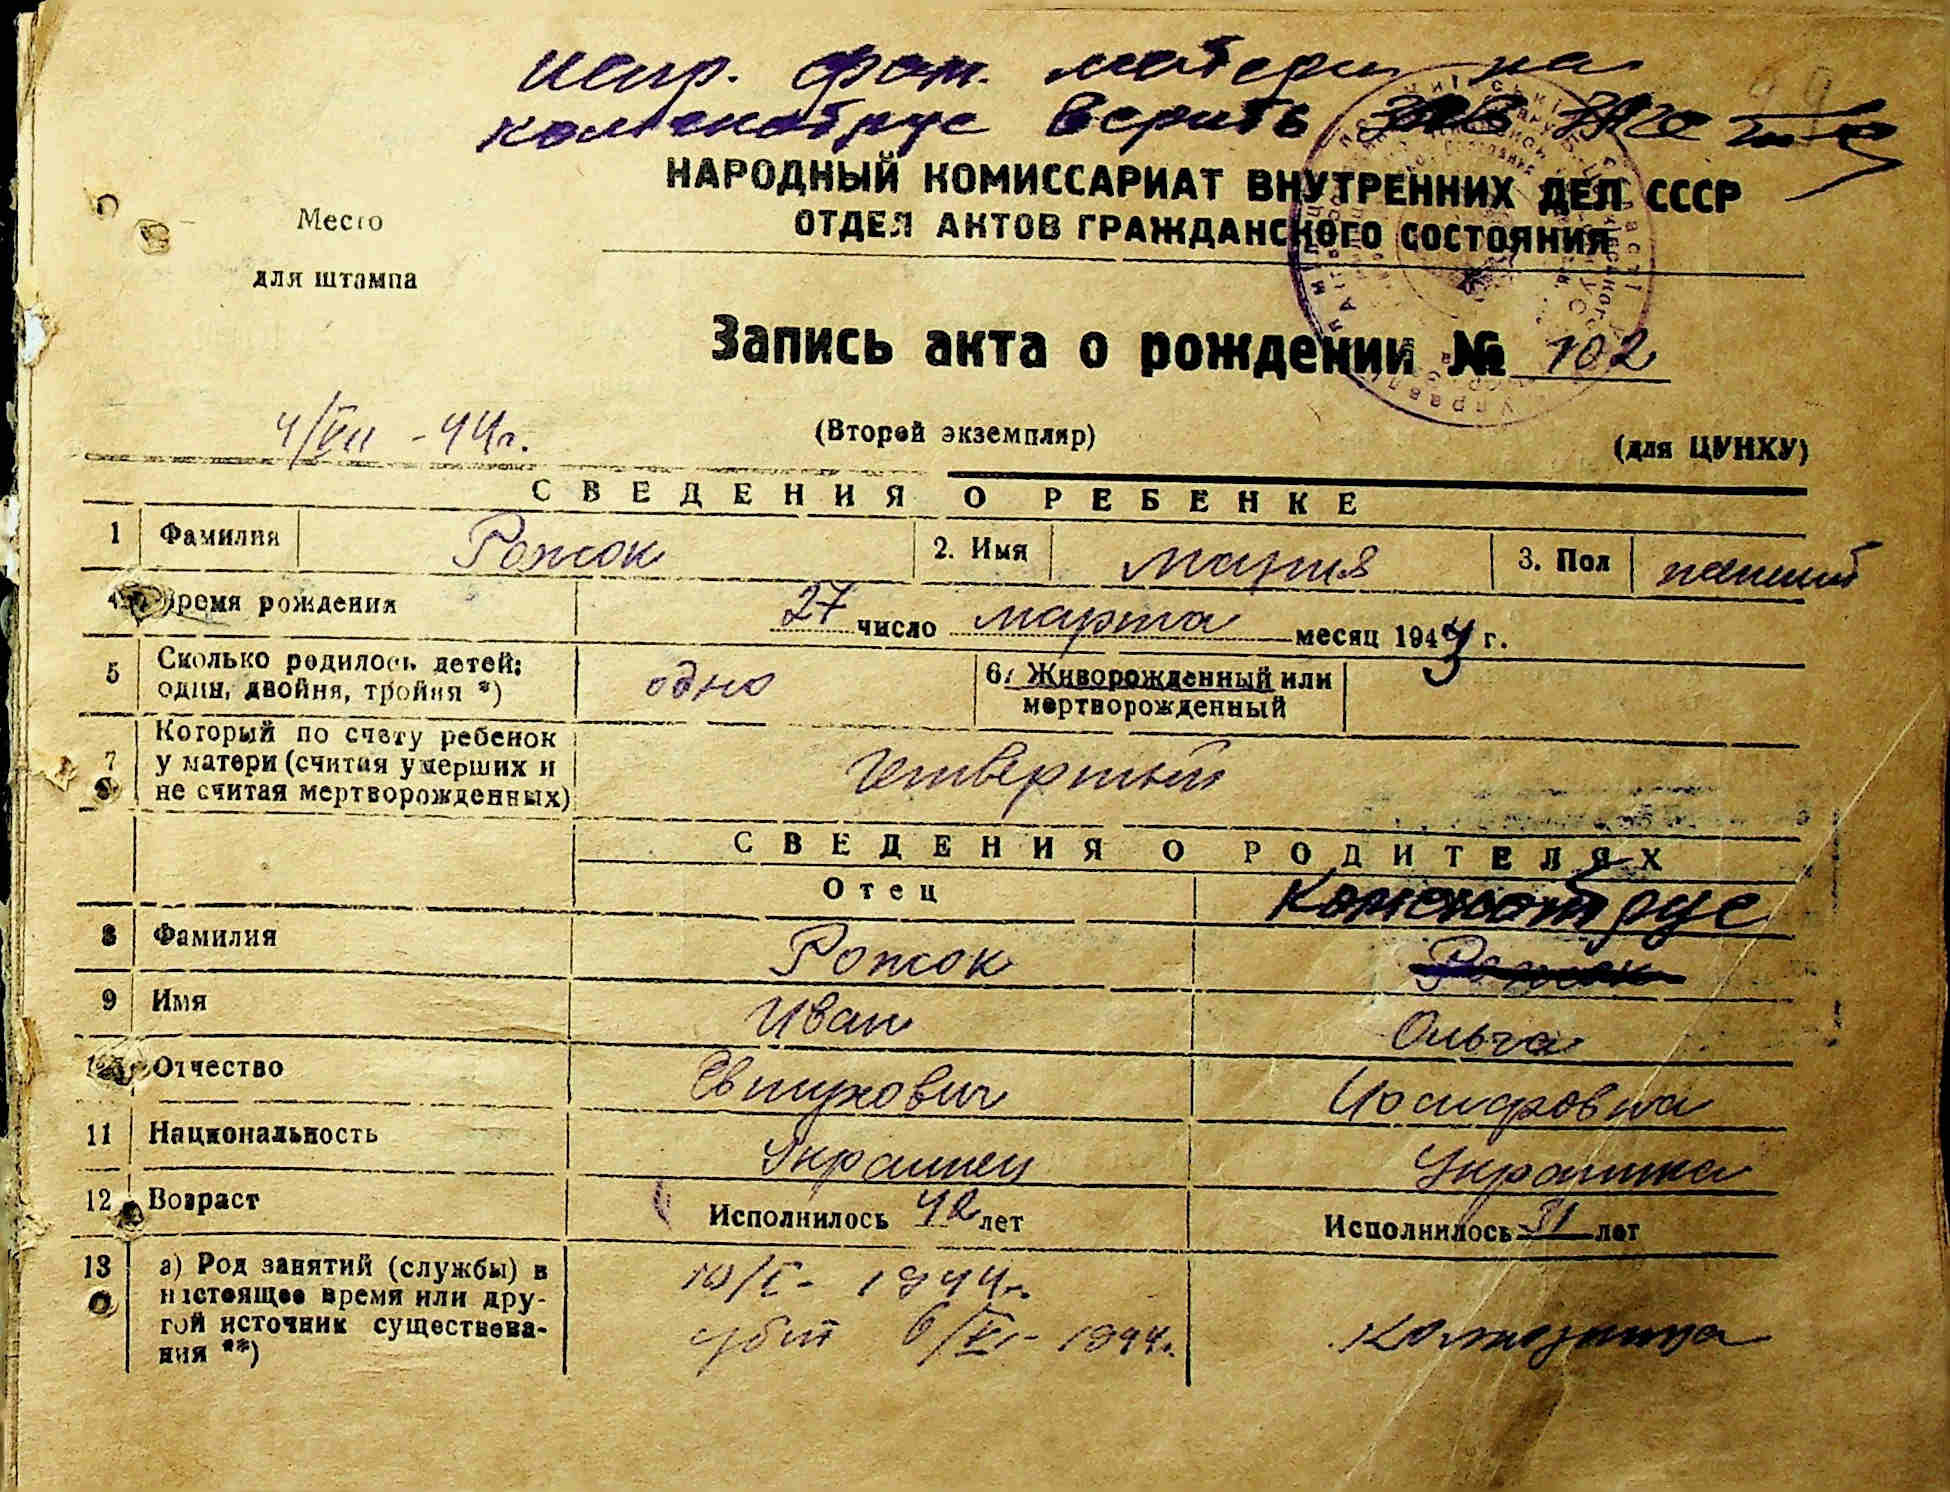 испр. фам. матери на
верить
НАРОДНЫЙ КОМИССАРИАТ ВНУТРЕННИХ ДЕЛ СССР
ОТДЕЛ АКТОВ ГРАЖДАНСКОГО СОСТОЯНИЯ
Место
для штампа
Запись акта о рождении № 102
4/VII - 44г. (Второй экземпляр) (для ЦУНХУ)
СВЕДЕНИЯ О РЕБЕНКЕ
1 Фамилия Рожок 2. Имя Мария 3. Пол
Время рождения 27 число марта месяц 194 г.
5 Сколько родилось детей: один, двойня, тройня *) одно 6. Живорожденный или мертворожденный
7 Который по счету ребенок у матери (считая умерших и не считая мертворожденных) четвертый
СВЕДЕНИЯ О РОДИТЕЛЯХ
Отец
8 Фамилия Рожок Рожок
9 Имя Иван Ольга
10 Отчество Евтухович Иосифовна
11 Национальность Украинец Украинка
12 Возраст Исполнилось 42 лет Исполнилось лет
13 а) Род занятий (службы) в настоящее время или другой источник существования **)
10/I - 1944г.
убит 6/VI - 1944г. Колхозница